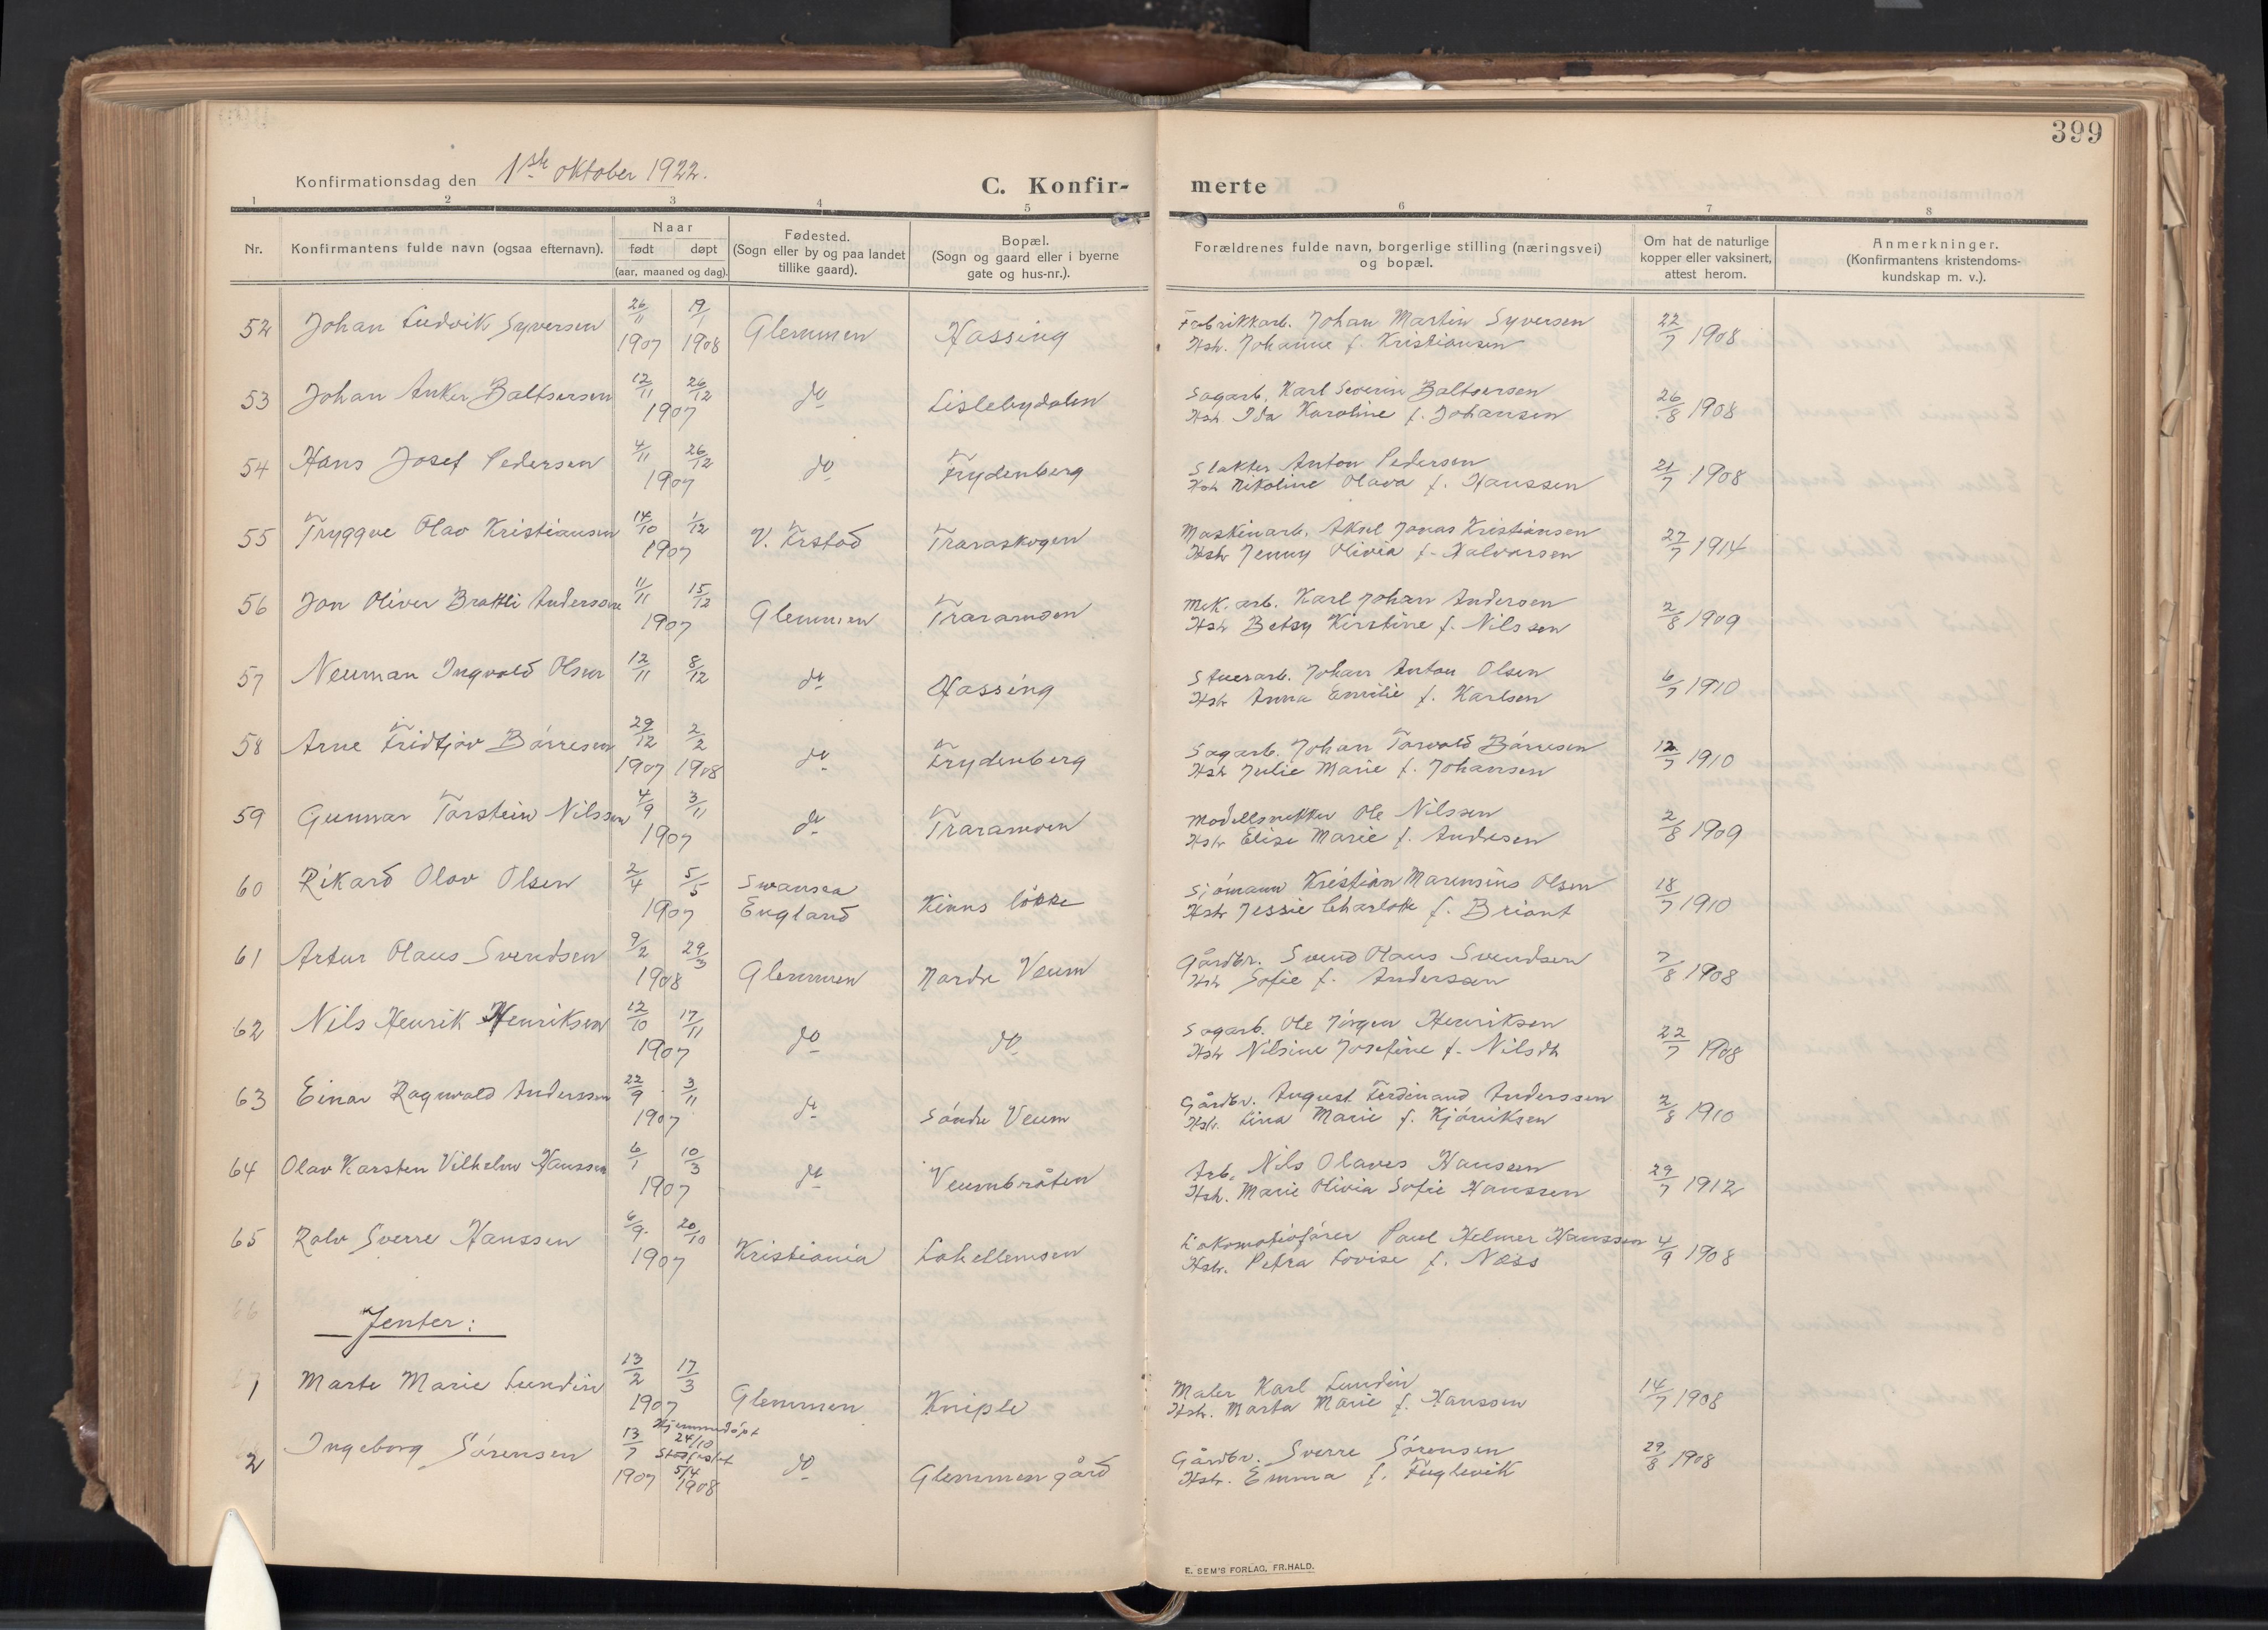 399
Konfirmationsdag den 1ste oktober 1922.
C. Konfir- merte
1 2 3 4 5 6 7 8
Nr.
Konfirmantens fulde navn (ogsaa efternavn).
Naar
født døpt
(aar, maaned og dag).
Fødested.
(Sogn eller by og paa landet
tillike gaard).
Bopæl.
(Sogn og gaard eller i byerne
gate og hus-nr.).
Forældrenes fulde navn, borgerlige stilling (næringsvei)
og bopæl.
Om hat de naturlige
kopper eller vaksinert,
attest herom.
Anmerkninger.
(Konfirmantens kristendoms-
kundskap m. v.).
52 Johan Ludvik Syversen 26/11 1907 19/1 1908 Glemmen Hassing
Fabrikkarb. Johan Martin Syversen
Hstr. Johanne f. Kristiansen
22/7 1908
53 Johan Anker Baltsersen 12/11 26/12 1907 do Lislebydalen
Sagarb. Karl Severin Baltsersen
Hstr. Ida Karoline f. Johansen
26/8 1908
54 Hans Josef Pedersen 4/11 26/12 1907 do Frydenberg
Slakter Anton Pedersen
Hstr Nikoline Olava f. Hanssen
21/7 1908
55 Tryggve Olav Kristiansen 14/10 1/12 1907 V. Frstad Traraskogen
Maskinarb. Aksel Jonas Kristiansen
Hstr Jenny Olivia f. Halvorsen
27/7 1914
56 Jon Oliver Brattli Anderssen 11/11 15/12 1907 Glemmen Traramoen
Mek. arb. Karl Johan Andersen
Hstr Betsy Kirstine f. Nilssen
2/8 1909
57 Neuman Ingvald Olsen 12/11 8/12 do Hassing
Stuerarb. Johan Anton Olsen
Hstr Anna Emilie f. Karlsen
6/7 1910
58 Arne Fridtjov Børresen 29/12 1907 2/2 1908 do Frydenberg
Sagarb. Johan Torvald Børresen
Hstr Julie Marie f. Johansen
12/7 1910
59 Gunnar Torstein Nilssen 4/9 3/11 1907 do Traramoen
Modellsnekker Ole Nilssen
Hstr Elise Marie f. Andresen
2/8 1909
60 Rikard Olav Olsen 2/4 5/5 1907 Swansea England Kinns løkke
Sjømann Kristian Marensius Olsen
Hstr Jessie Charlotte f. Briant
18/7 1910
61 Artur Olaus Svendsen 9/2 29/3 1908 Glemmen Nordre Veum
Gårdbr. Svend Olaus Svendsen
Hstr Sofie f. Anderssen
7/8 1908
62 Nils Henrik Henriksen 12/10 17/11 1907 do do
Sagarb. Ole Jørgen Henriksen
Hstr Nilsine Josefine f. Nilsdtr
22/7 1908
63 Einar Ragnvald Anderssen 22/9 3/11 1907 do Søndre Veum
Gårdbr. August Ferdinand Anderssen
Hstr. Lina Marie f. Kjøniksen
2/8 1910
64 Olav Karsten Vilhelm Hanssen 6/1 10/3 1907 do Veumbråten
Arb. Nils Olaves Hanssen
Hstr. Marie Olivia Sofie Hanssen
29/7 1912
65 Rolv Sverre Hanssen 6/9 20/10 1907 Kristiania Lahellemoen
Lokomotivfører Paul Helmer Hanssen
Hstr. Petra Lovise f. Næss
4/9 1908
66
Jenter:
1 Marte Marie Lundin 13/2 17/3 1907 Glemmen Kniple
Maler Karl Lundin
Hstr. Marta Marie f. Hanssen
14/7 1908
2 Ingeborg Sørensen 13/7 1907 Hjemmedøpt 24/10 Stadfestet 5/4 1908 do Glemmen gård
Gårdbr. Sverre Sørensen
Hstr. Emma f. Fuglevik
29/8 1908
E. SEM'S FORLAG, FR.HALD.